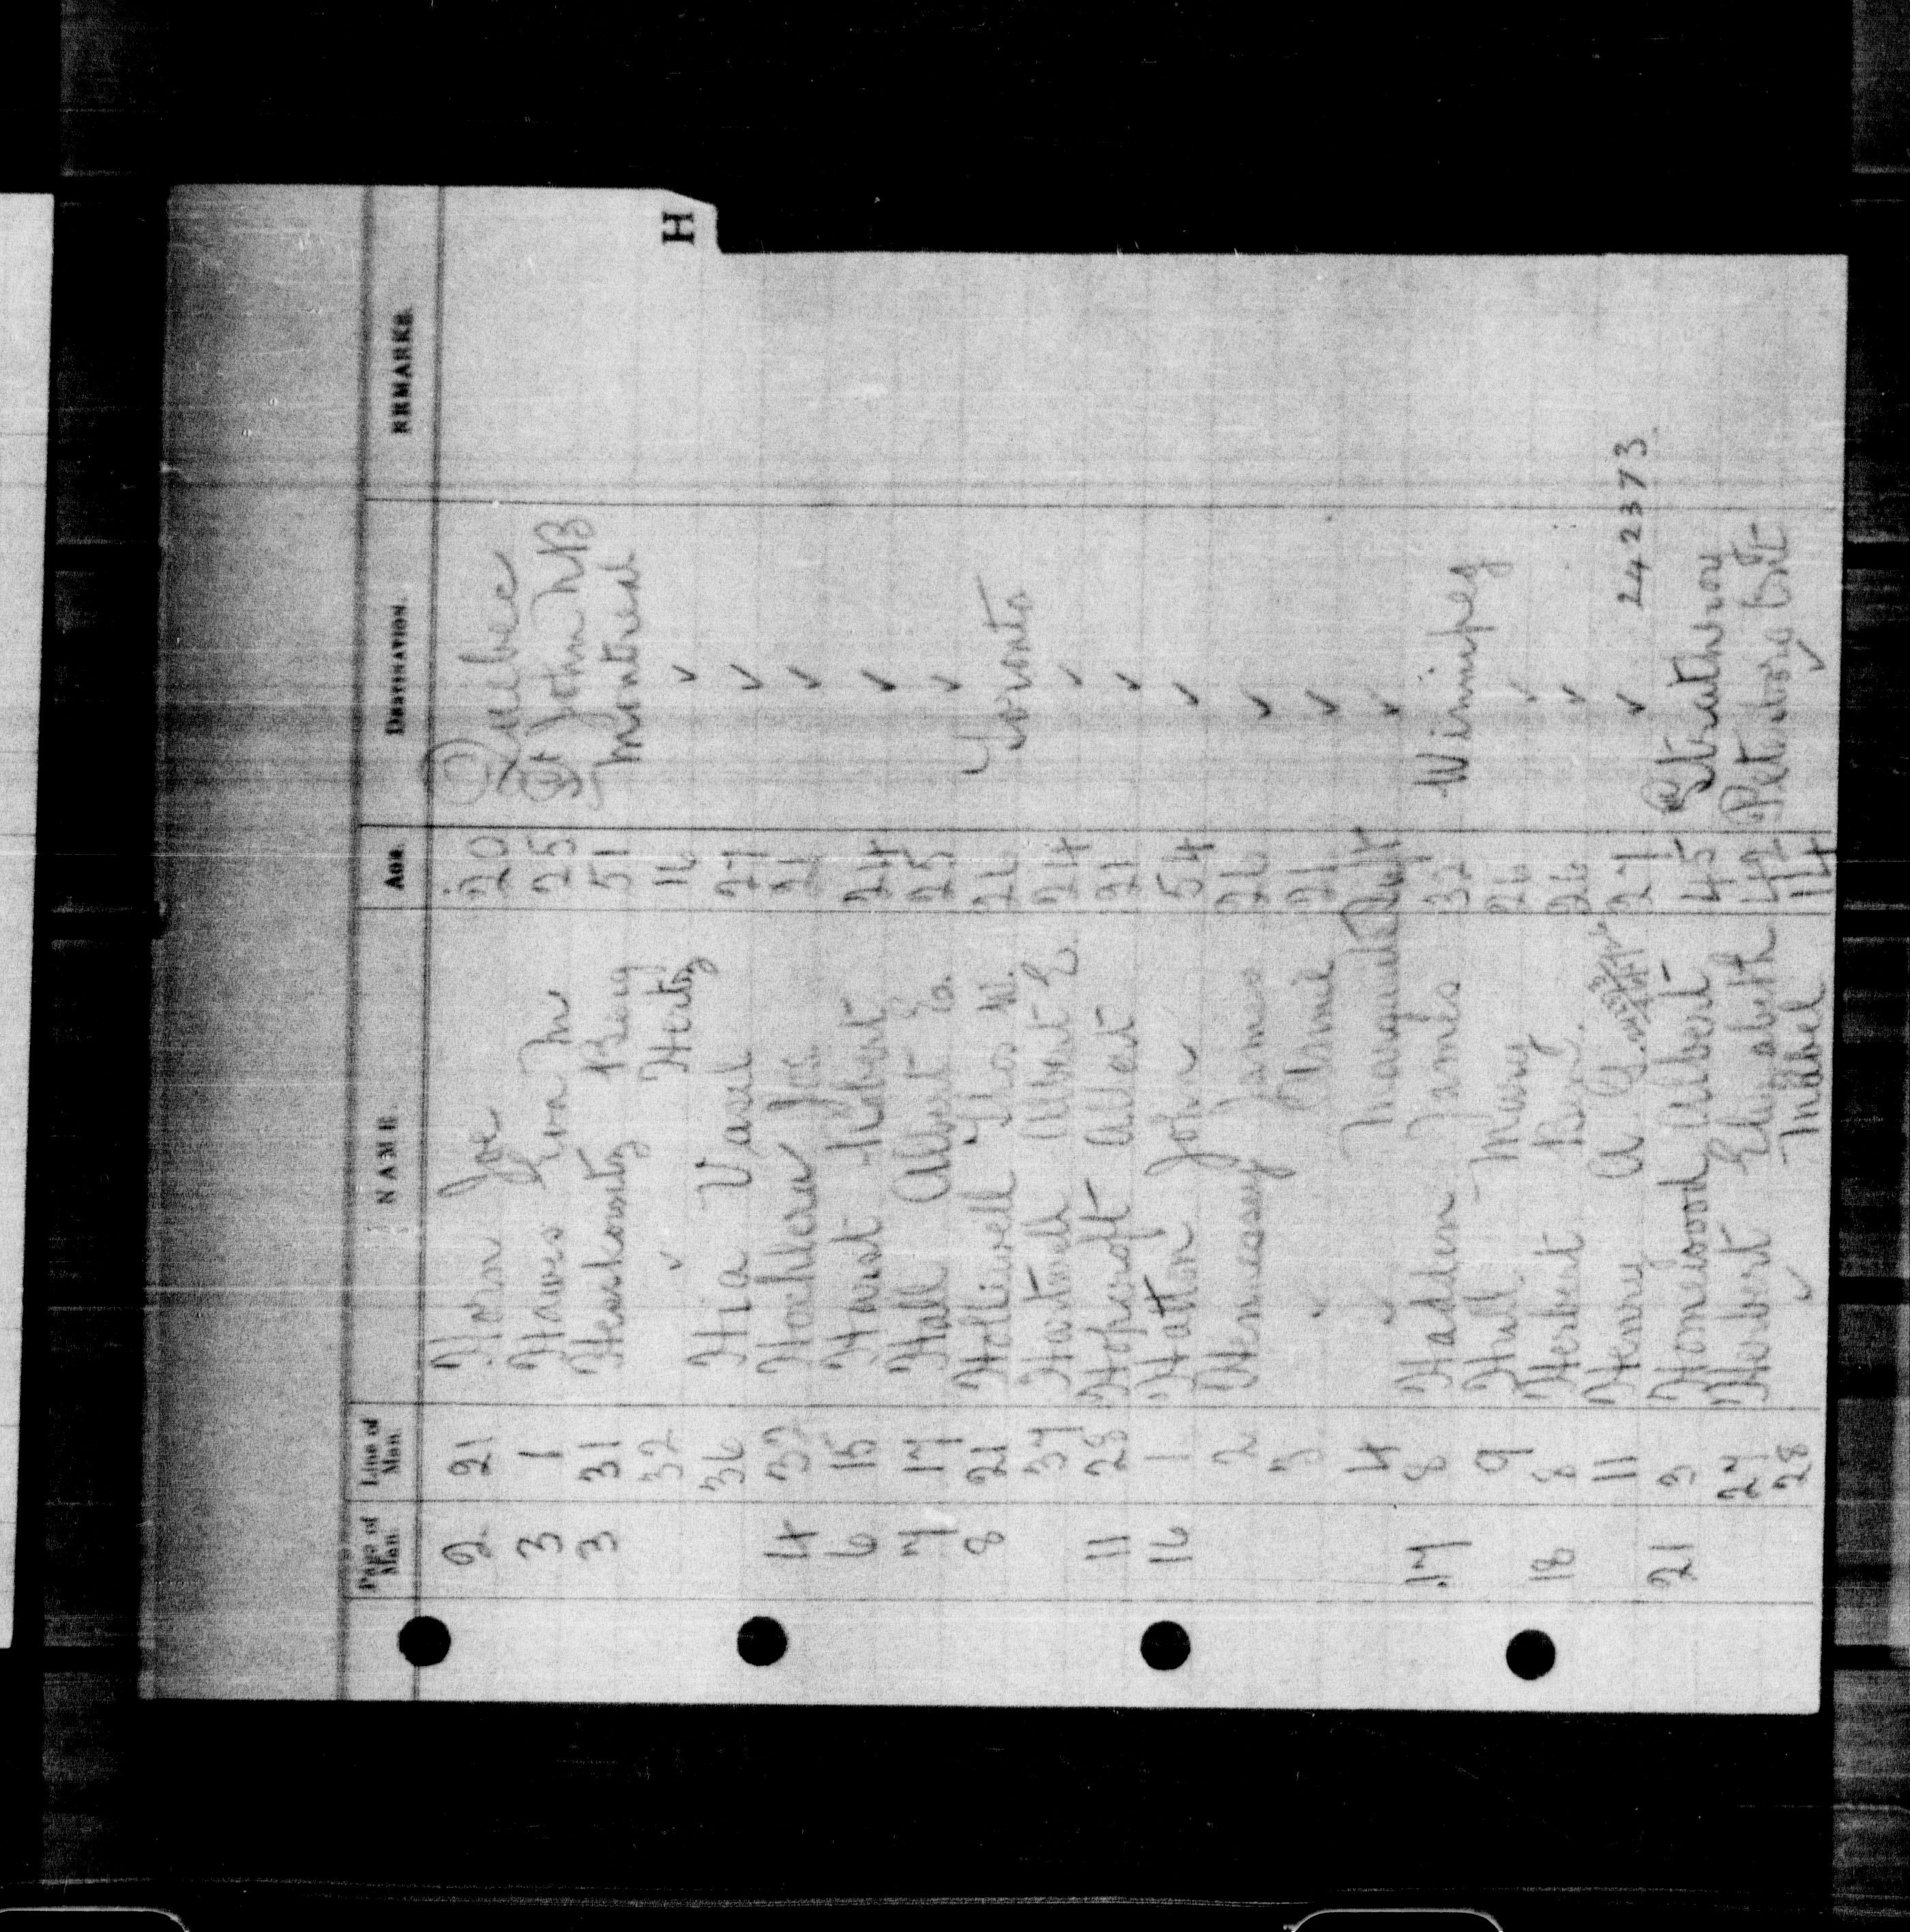 H
Page of Man. Line of Man. NAME. AGE. DESTINATION. REMARKS.
2 21 Horn Joe 20 Quebec
3 1 Hawes Leon M 25 St John NB
3 31 Hershowitz 51 Montreal
32 ✓ Hertz 16 ✓
36 Hia Vasil 27 ✓
4 32 Jos 21 ✓
6 15 Hurst Robert 24 ✓
7 17 Hall Albert E. 25 ✓
8 21 Holliwell Thos W. 26 Toronto
37 Hartnell Albert E. 24 ✓
11 28 Hopcroft Albert 21 ✓
16 1 Hatton John 54 ✓
2 Hennessey James 26 ✓
3 ✓ Annie 21 ✓
4 ✓ ✓
17 8 Hadden James 32 Winnipeg
9 Hull Mary 26 ✓
18 8 Herbert Benj. 26 ✓
11 Henry A A 27 ✓
242373
21 3 Honeywood Albert 45 Strathroy
27 Herbert Elizabeth 42 Peterboro Ont
28 ✓ Mabel 14 ✓